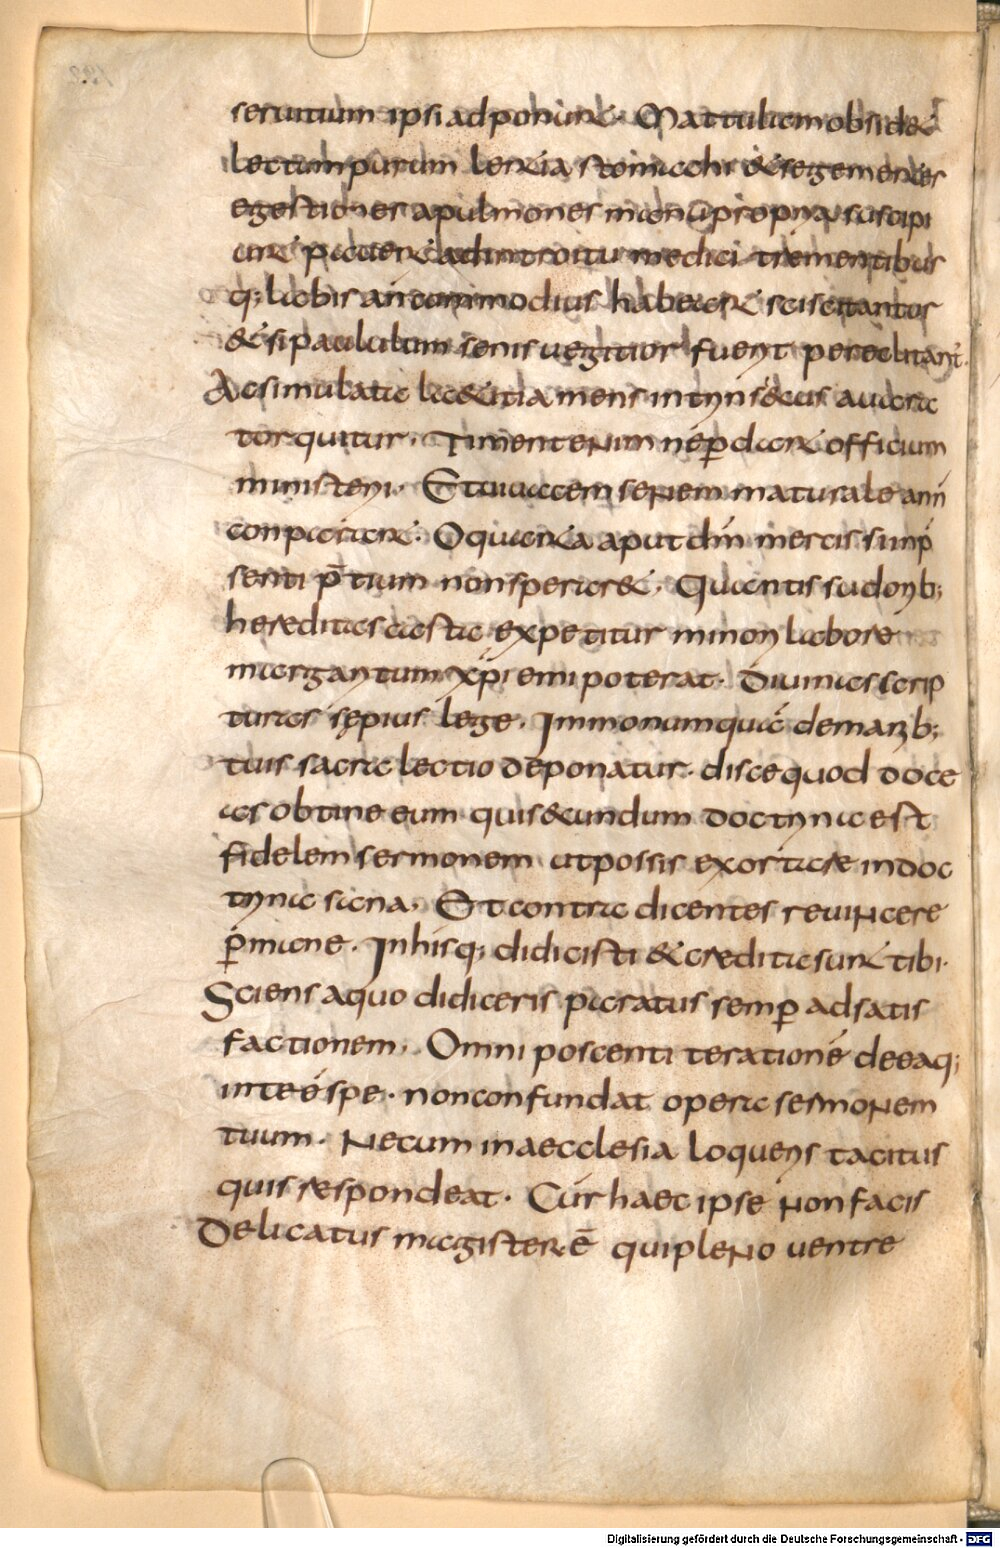 seruitium ipsi adponunt. Mattulam obsident
lectum purum lentia stomachi & segmentes
egestiones a pulmones manu propria suscipi
unt pauent ad introitu medici trementibus
q; labis an commodius habeant sciscitantur
& si paululum senis uegitior fuerit pereclitant̃.
Ac simulata laetitia mens intrinsecus auara
torquitur. Timent enim ne p̄dant officium
ministerii. Et uiuacem senem maturale anñ
conparant. O quanta aput dm̄ mercis si in p̄
senti p̄tium non sperarent. Quantis sudorib;
hereditas casta expetitur minori labore
margaritum xp̄i emi poterat. Diuinas scrip
turas sępius lege. Immo numquā de manib;
tuis sacra lectio deponatur. disce quod doce
as obtine eum qui secundum doctrina est
fidelem sermonem ut possis exortare in doc
trina sana. Et contra dicentes reuincere
p̄mane. In his q; didicisti & credita sunt tibi.
Sciens a quo didiceris paratus semper ad satis
factionem. Omni poscenti te rationē de eaq;
in te ē spe. non confundat opera sermonem
tuum. Ne cum in aecclesia loqueris tacitus
quis respondeat. Cur haec ipse non facis
Delicatus magister ē qui pleno uentre